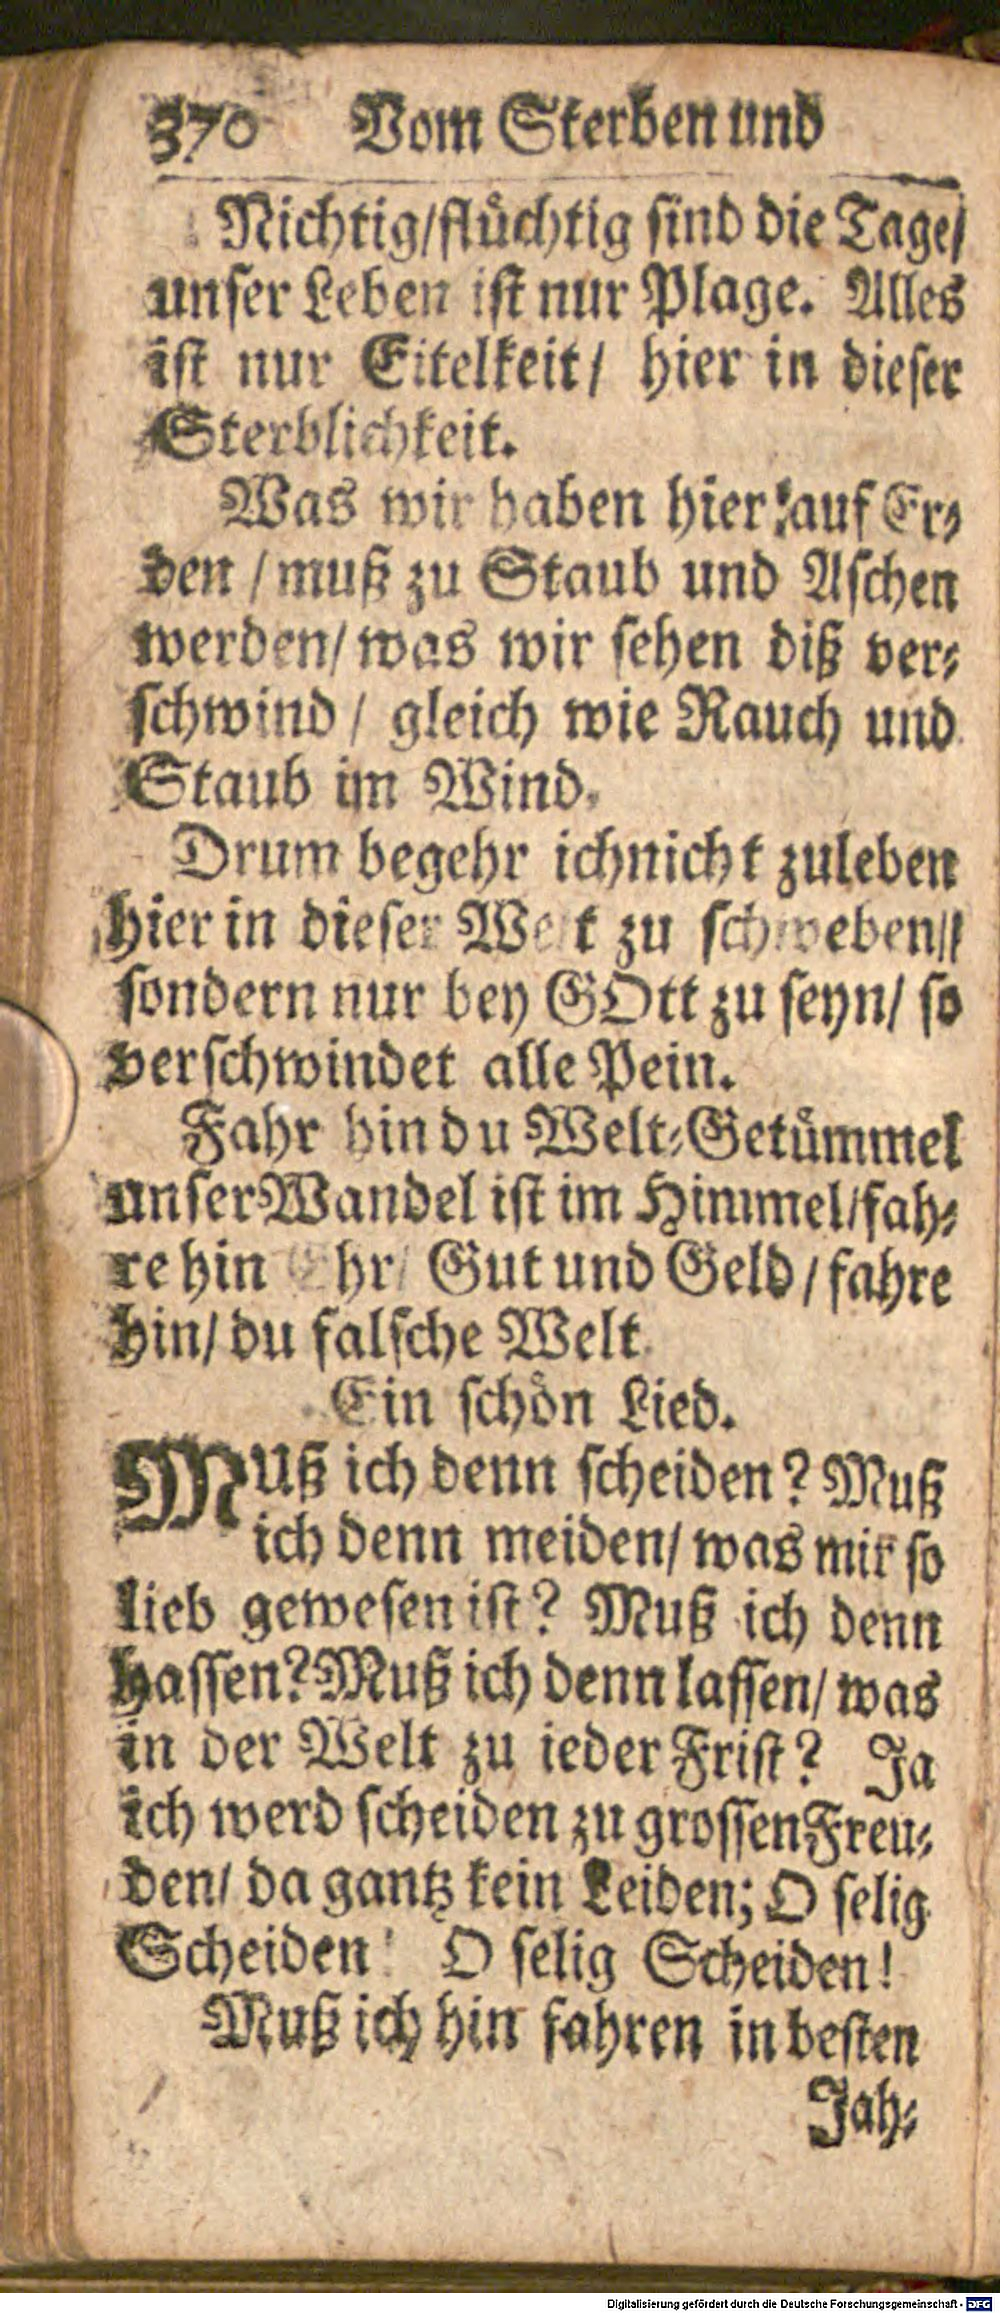 370 Vom Sterben und
Nichtig/flüchtig sind die Tage/
unser Leben ist nur Plage. Alles
ist nur Eitelkeit/ hier in dieser
Sterblichkeit.
Was wir haben hier auf Er-
den / muß zu Staub und Aschen
werden/ was wir sehen diß ver-
schwind / gleich wie Rauch und
Staub im Wind.
Drum begehr ichnicht zuleben
hier in dieser Welt zu schweben/
sondern nur bey GOtt zu seyn/ so
verschwindet alle Pein.
Fahr hin du Welt-Getümmel
unser Wandel ist im Himmel/fah-
re hin Ehr/ Gut und Geld / fahre
hin/ du falsche Welt.
Ein schön Lied.
MUß ich denn scheiden? Muß
ich denn meiden/ was mir so
lieb gewesen ist? Muß ich denn
hassen? Muß ich denn lassen/ was
in der Welt zu ieder Frist? Ja
ich werd scheiden zu grossen Freu-
den/ da gantz kein Leiden; O selig
Scheiden! O selig Scheiden!
Muß ich hin fahren in besten
Jah-
Digitalisierung gefördert durch die Deutsche Forschungsgemeinschaft - DFG